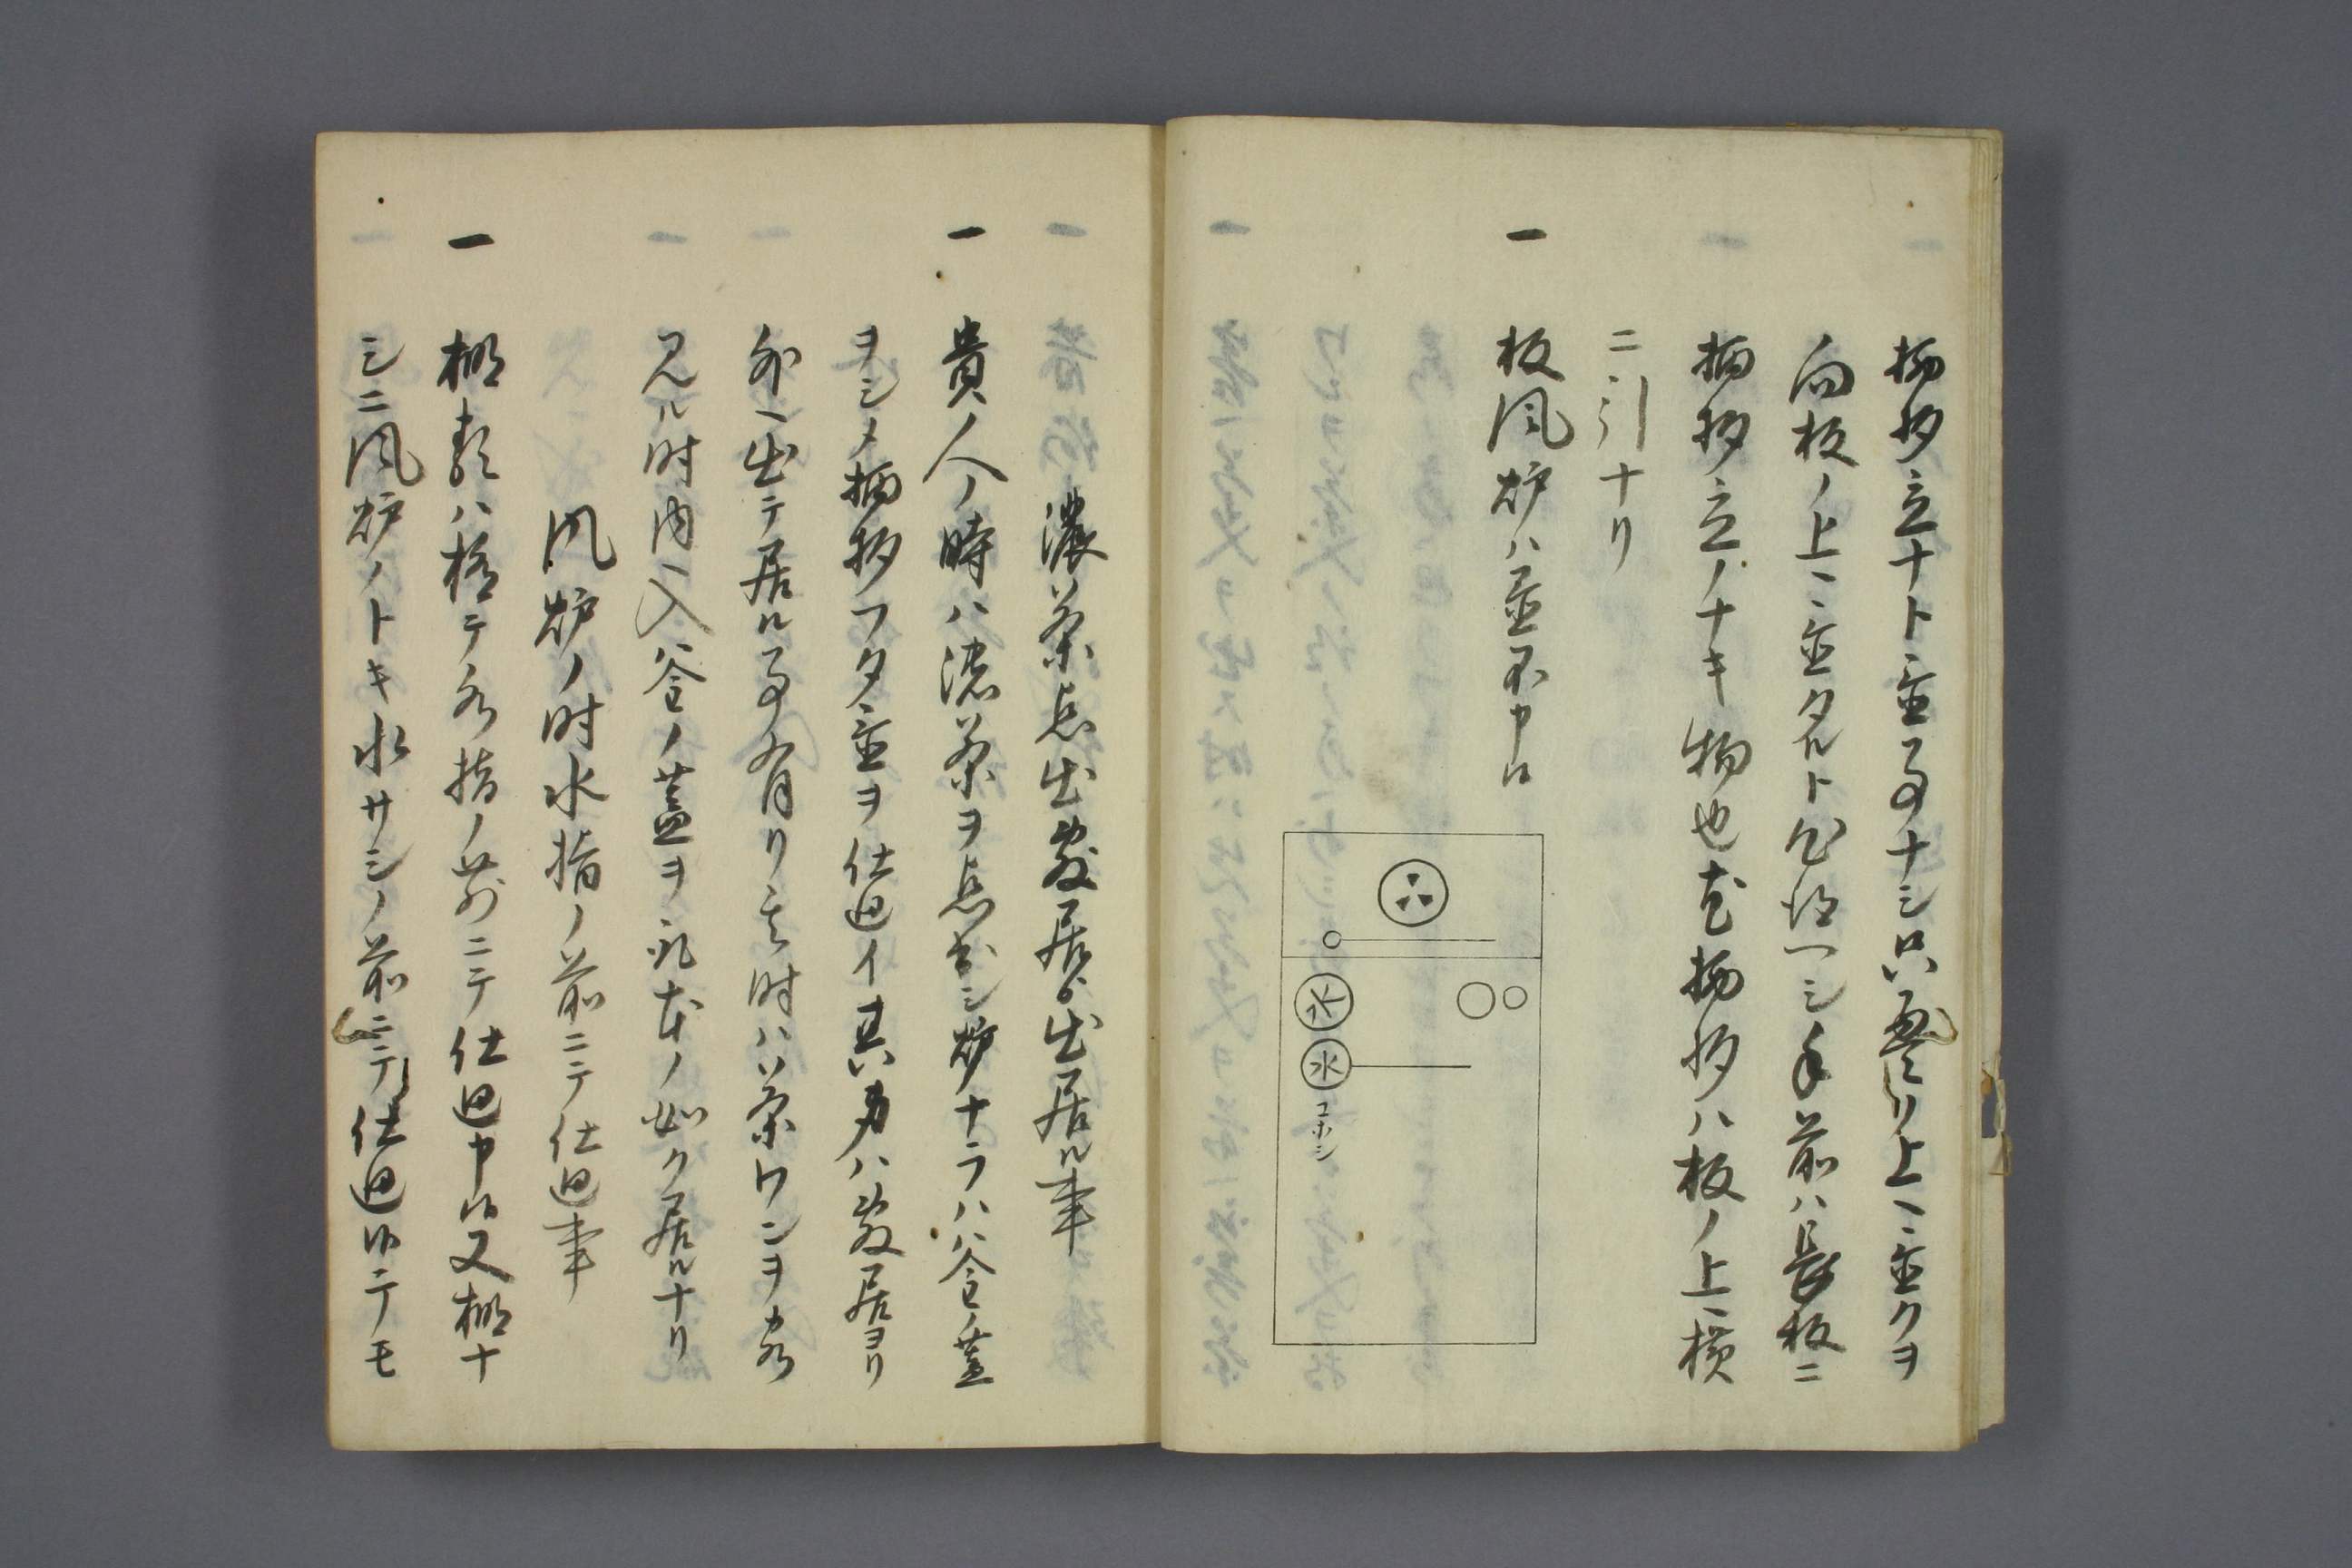 柄杓立ナト置事ナシ只畳ヨリ上ヘ置クヲ
向板ノ上ヘ置タルト心得ヘシ手前ハ長板ニ
柄杓立ノナキ物也尤柄杓ハ板ノ上ヘ横
ニ引ナリ
一 板風炉ハ置不申候
水
水
コホシ
濃茶点出敷居ゟ出居ル事
一 貴人ノ時ハ濃茶ヲ点出シ炉ナラハ釜ノ蓋
ヲシメ柄杓フタ置ヲ仕廻イ其身ハ敷居ヨリ
外ヘ出テ居ル事有リ其時ハ茶ワンヲ
見ル時内ヘ入釜ノ蓋ヲ取本ノ如ク居ルナリ
風炉ノ時水指ノ前ニテ仕廻事
一 棚類ハ惣テ水指ノ前ニテ仕廻申候又棚ナ
シニ風炉ノトキ水サシノ前ニテ仕廻候テモ